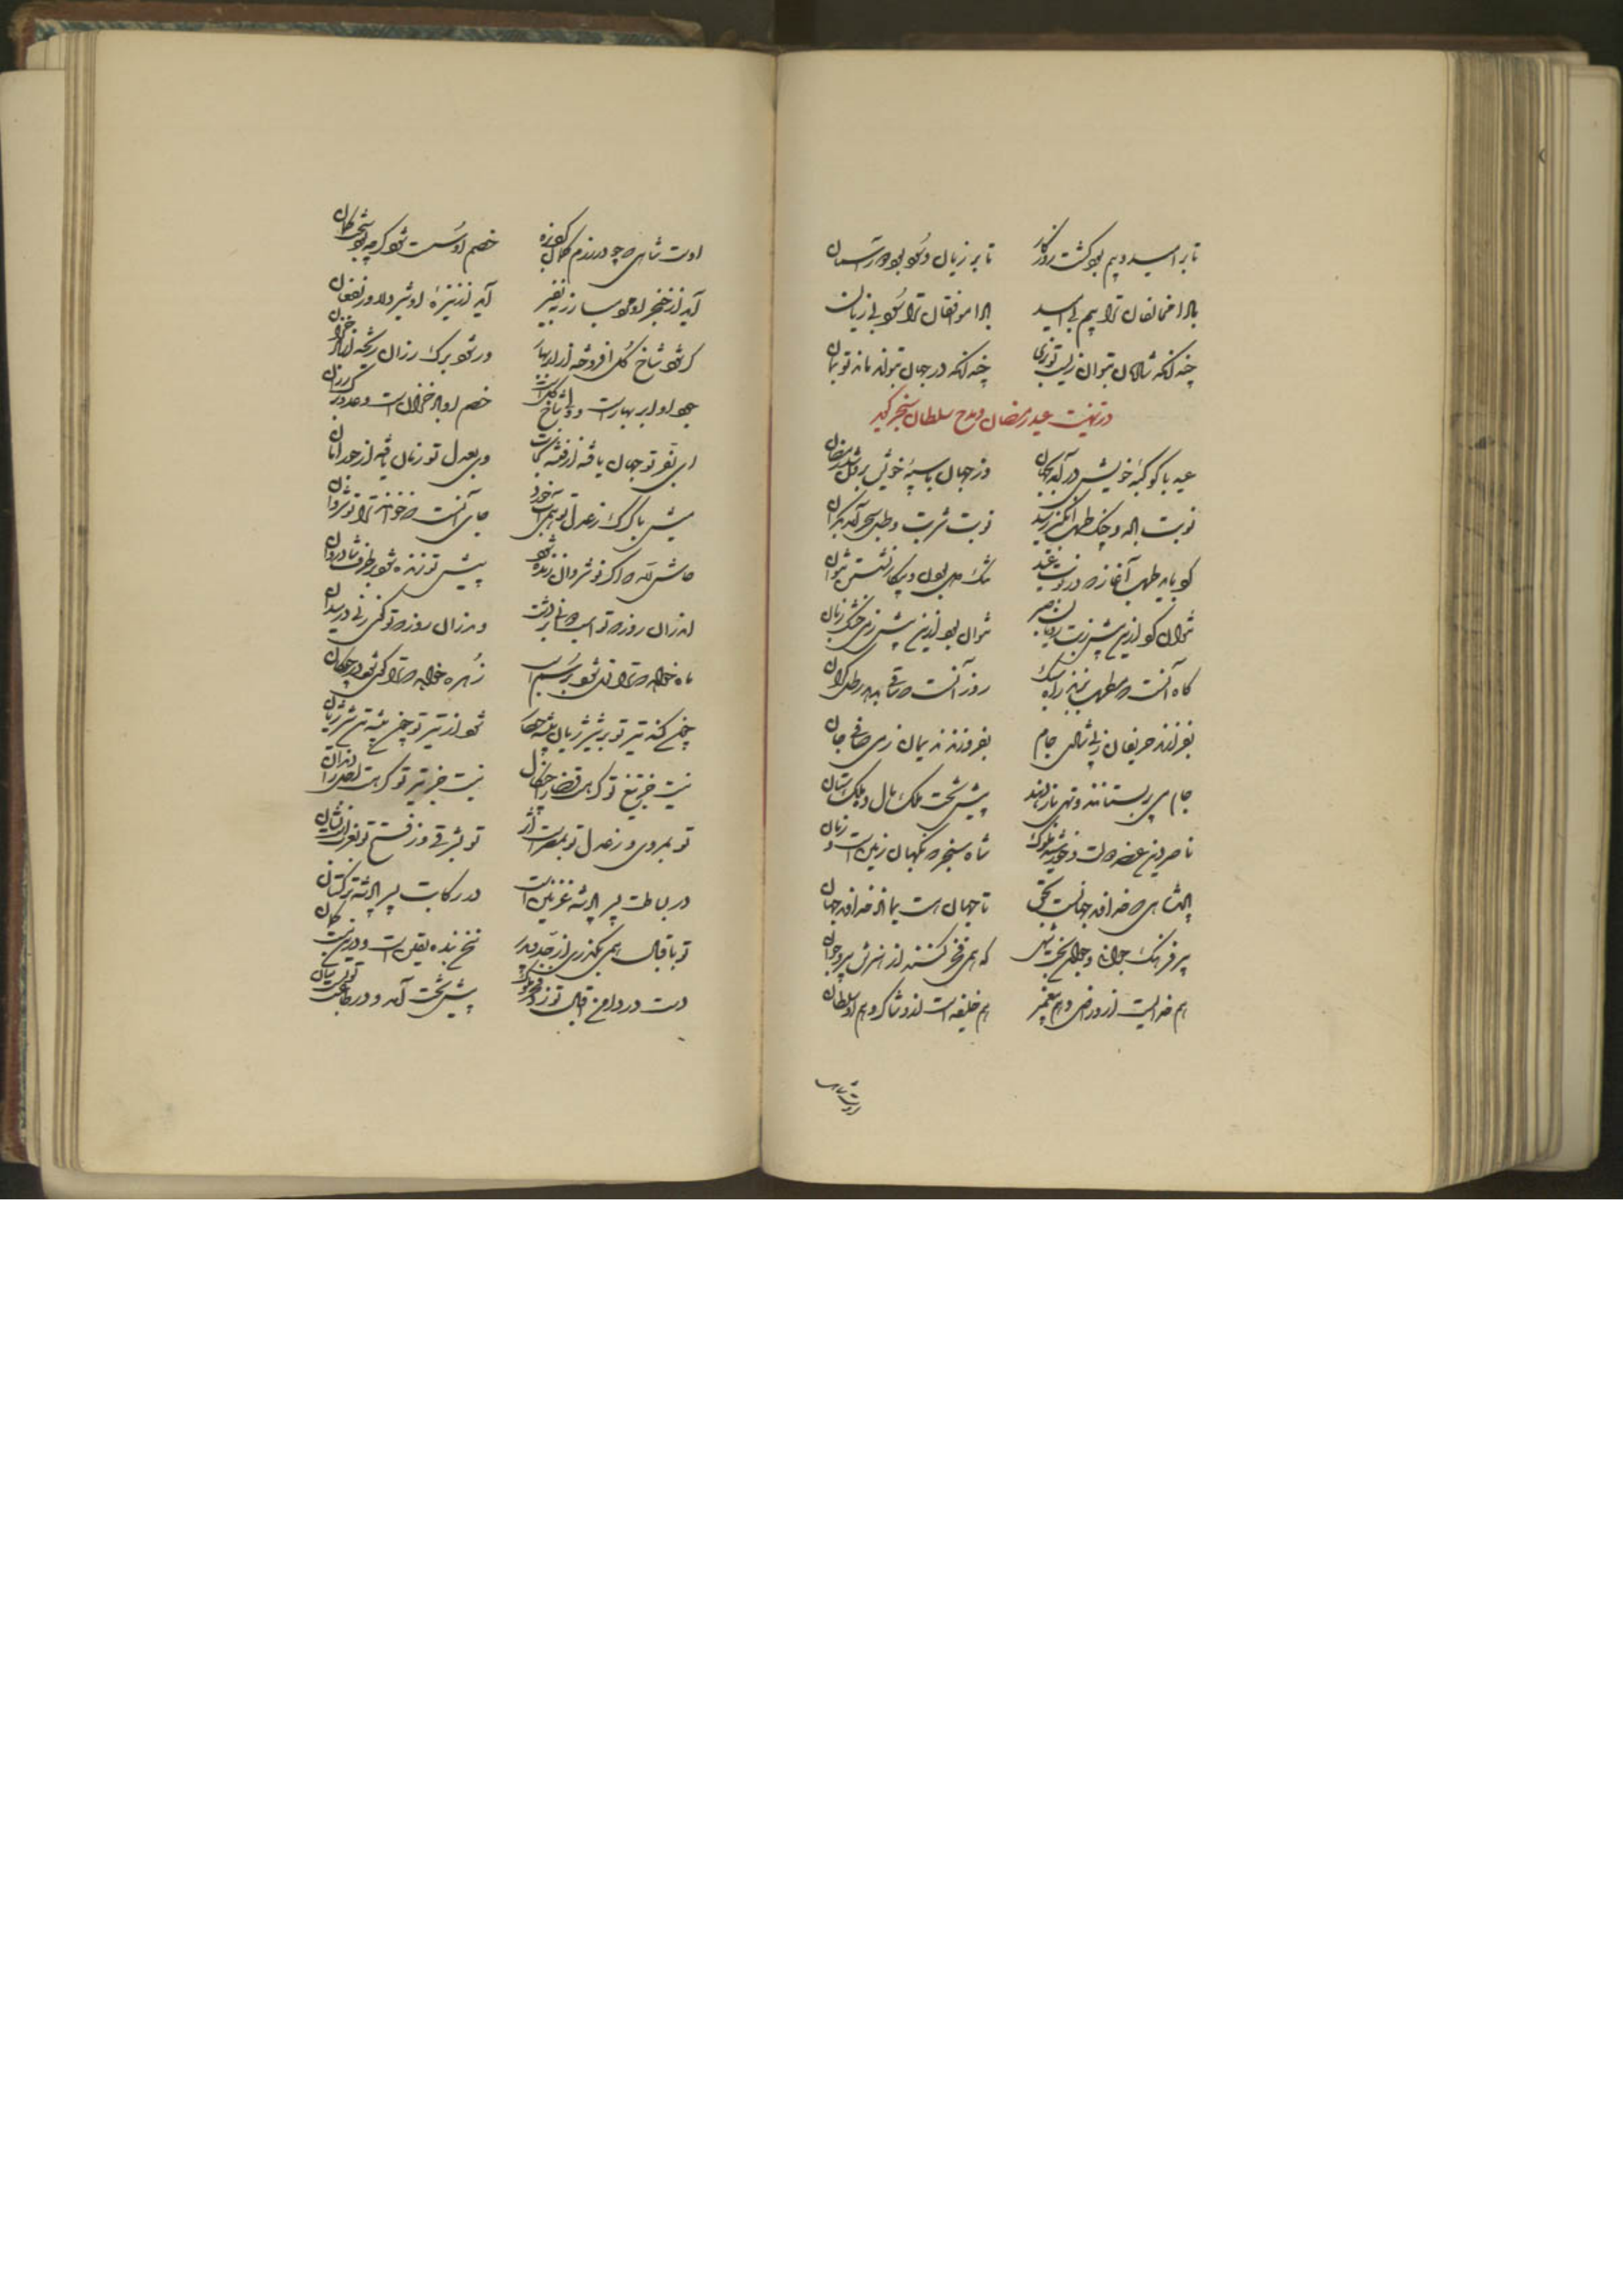 تا بر امید و بیم بود گشت روزگار تا بر زیان و سود بود دور آسمان
بادا مخالفان ترا بیم بی امید بادا موافقان ترا سود بی زیان
چندانکه شادمان بتوان زیست تو بزی چندانکه در جهان بتوان ماند تو بمان
در تهنیت عید رمضان و مدح سلطان سنجر گوید
عید با کوکبهٔ خویش در آمد بجهان وز جهان با سپه خویش برون شد رمضان
نوبت باده و چنگ طرب انگیز رسید نوبت شربت و طبل سحر آمد بکران
کو بیا مطرب آغاز در نوبت عید
توان کو ازین پیش توان بود ازین پیش خشک زبان
گاه آنست که مطرب بزند راه سبک روز آنست که ساقی بدهد رطل گران
بفرازند حریفان ز پی شادی جام بفروزند ندیمان ز می صافی جان
جام می پر بستانند و تهی باز دهند پیش تخت ملک مال ده ملک ستان
ناصر دین عضد دولت و خورشید ملوک شاه سنجر که نگهبان زمین است و زمان
پادشاهی که خداوند جهانست بحق تا جهان است بماناد خداوند جهان
پیر فرهنگ جوانی و جوانبخت شهی که همی فخر کنند از هنرش پیر و جوان
هم خدایست ازو راضی و هم پیغمبر هم خلیفه است ازو شاکر و هم سلطان
اوست شاهی
اوست شاهی که چو در رزم کمان کرد بزه خصم او سست شود گرچه بود سخت کمان
آید از خنجر او جود مبارز بنفیر آید از نیزهٔ او شیر دلاور بفغان
گر شود شاخ گل افروخته از ابر بهار ور شود برگ رزان ریخته از باد خزان
جود او ابر بهارست و ولی شاخ گلست خصم او باد خزان است و عدو برگ رزان
ای بفر تو جهان یافته از فتنه نجات وی بعدل تو زمان یافته از جور امان
میش با گرگ ز عدل تو همی آب خورد جای آنست که خوانند ترا نوشروان
حاش لله که اگر نوشروان زنده شود پیش تو زنده شود بر طرف شادروان
اندران روز که تو اسب جهانی بر دشت وندران روز که تو گوی زنی در میدان
ماه خواهد که ترا نعل شود بر سم اسب زهره خواهد که ترا گوی شود در چوگان
چشم کند تیر تو بر شیر ژیان بیشه حصار شود از تیر تو چشم بیشه شیر ژیان
نیست جز تیغ تو گر هست قضا را چنگال نیست جز تیر تو گر هست اجل را دندان
تو بمروی و ز عدل تو بمصرست اثر تو بشرقی و ز فتح تو بغرب است نشان
در بساطت پسر پادشه غزنین است در رکابت پسر پادشه ترکستان
تو باقبال همی بگذری از جد و پدر سخن بنده یقین است و درین نیست گمان
دست در دامن اقبال تو زد فخر ملوک پیش تخت آمد و در طاعت تو بست میان